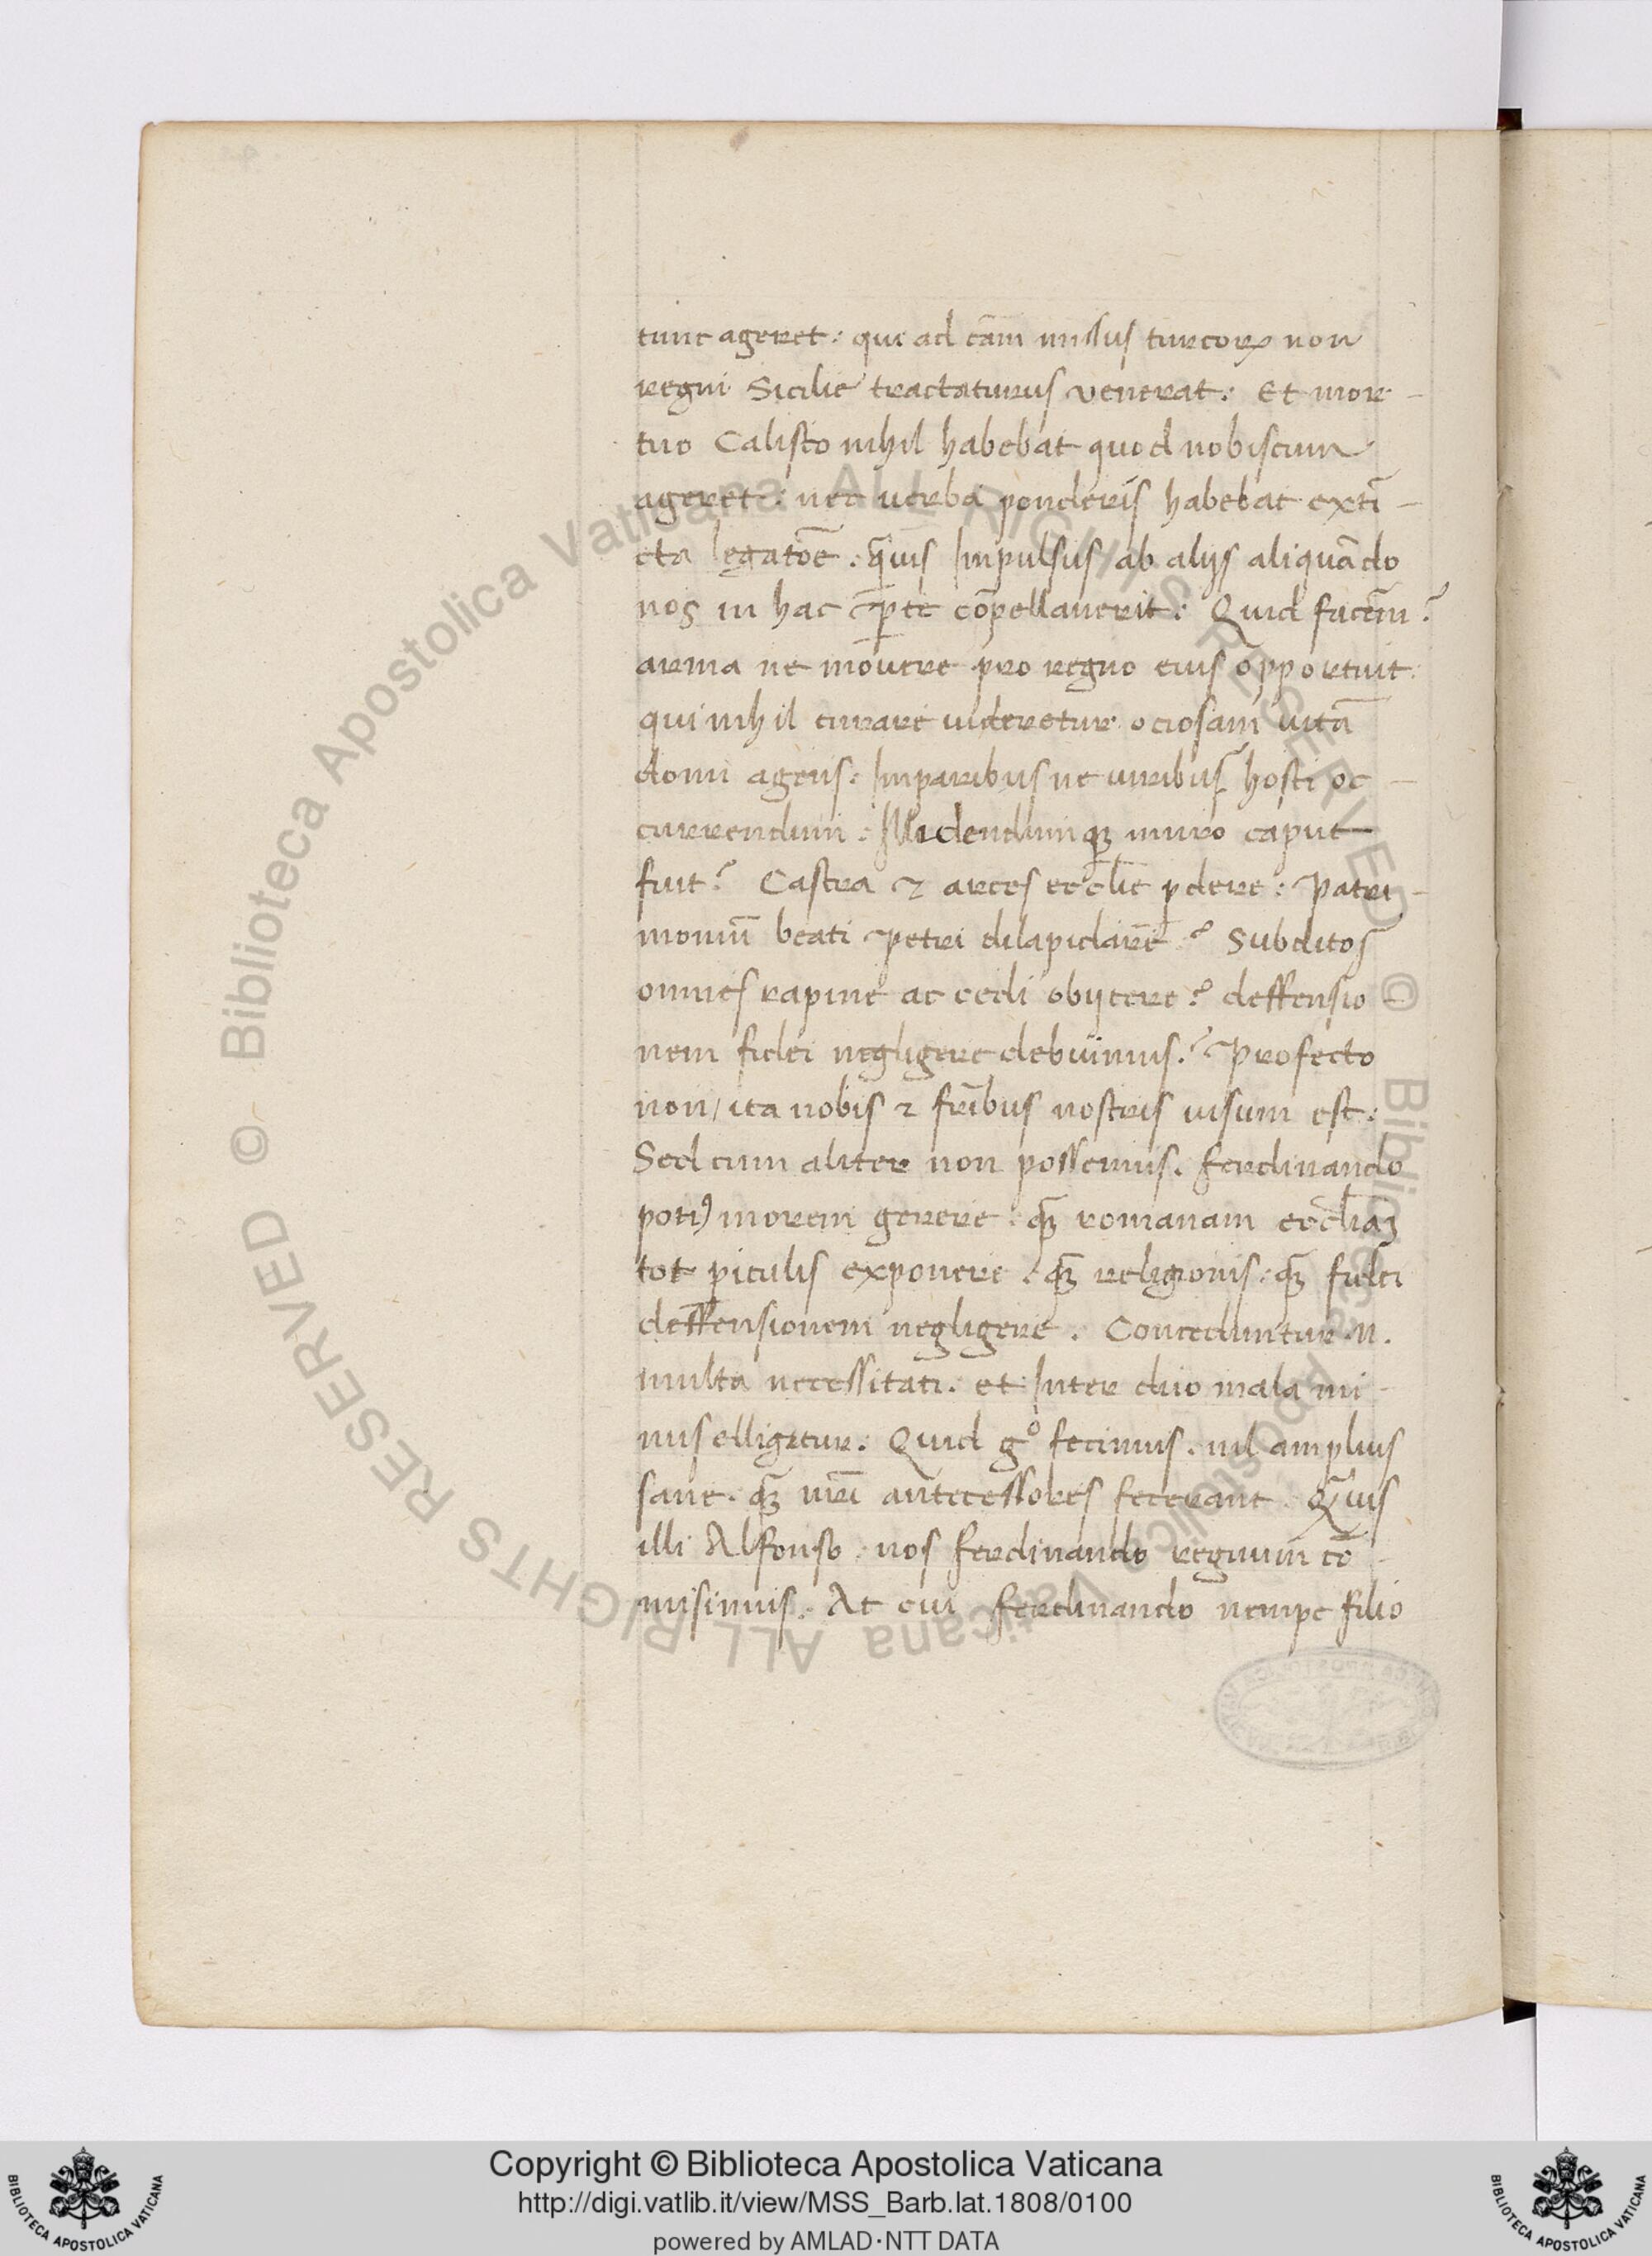 tunc ageret: qui ad cām missus turcoꝝ non
regni Sicilie tractaturus venerat: Et mor-
tuo Calisto nihil habebat quod nobiscum
ageret: nec verba ponderis habebat extī-
cta legatōe. q̄uis Impulsus ab alijs aliquādo
nos in hac ꝑte cōpellauerit: Quid facem̄?
arma ne mouere pro regno eius opportuit:
qui nihil curare uideretur ociosam uitā
domi agens. Imparibus ne uiribus hosti oc-
currendum: Illidendumqꝫ muro caput
fuit? Castra ⁊ arces eccl̄ie ꝑdere: Patri-
moniū beati Petri dilapidare? Subditos
omnes rapine ac cedi obijcere? deffensio-
nem fidei negligere debuimus? Profecto
non/ ita nobis ⁊ fr̄ibus nostris uisum est:
Sed cum aliter non possemus. ferdinando
potiꝰ morem gerere. qꝫ̄ romanam eccl̄iaꝫ
tot ꝑiculis exponere. qꝫ̄ religionis. qꝫ̄ fidei
deffensionem negligere. Conceduntur .n.
multa necessitati. et Inter duo mala mi-
nus elligetur. Quid gͦ fecimus. nil amplius
sane. qꝫ̄ nr̄i antecessores fecerant. Q̄uis
illi Alfonso. nos ferdinando regnum cō-
misimus. At cui ferdinando nempe filio
© Biblioteca Apostolica Vaticana ALL RIGHTS RESERVED © Biblioteca Apostolica Vaticana ALL RIGHTS RESERVED
Copyright © Biblioteca Apostolica Vaticana
http://digi.vatlib.it/view/MSS_Barb.lat.1808/0100
powered by AMLAD·NTT DATA
BIBLIOTECA APOSTOLICA VATICANA
BIBLIOTECA APOSTOLICA VATICANA